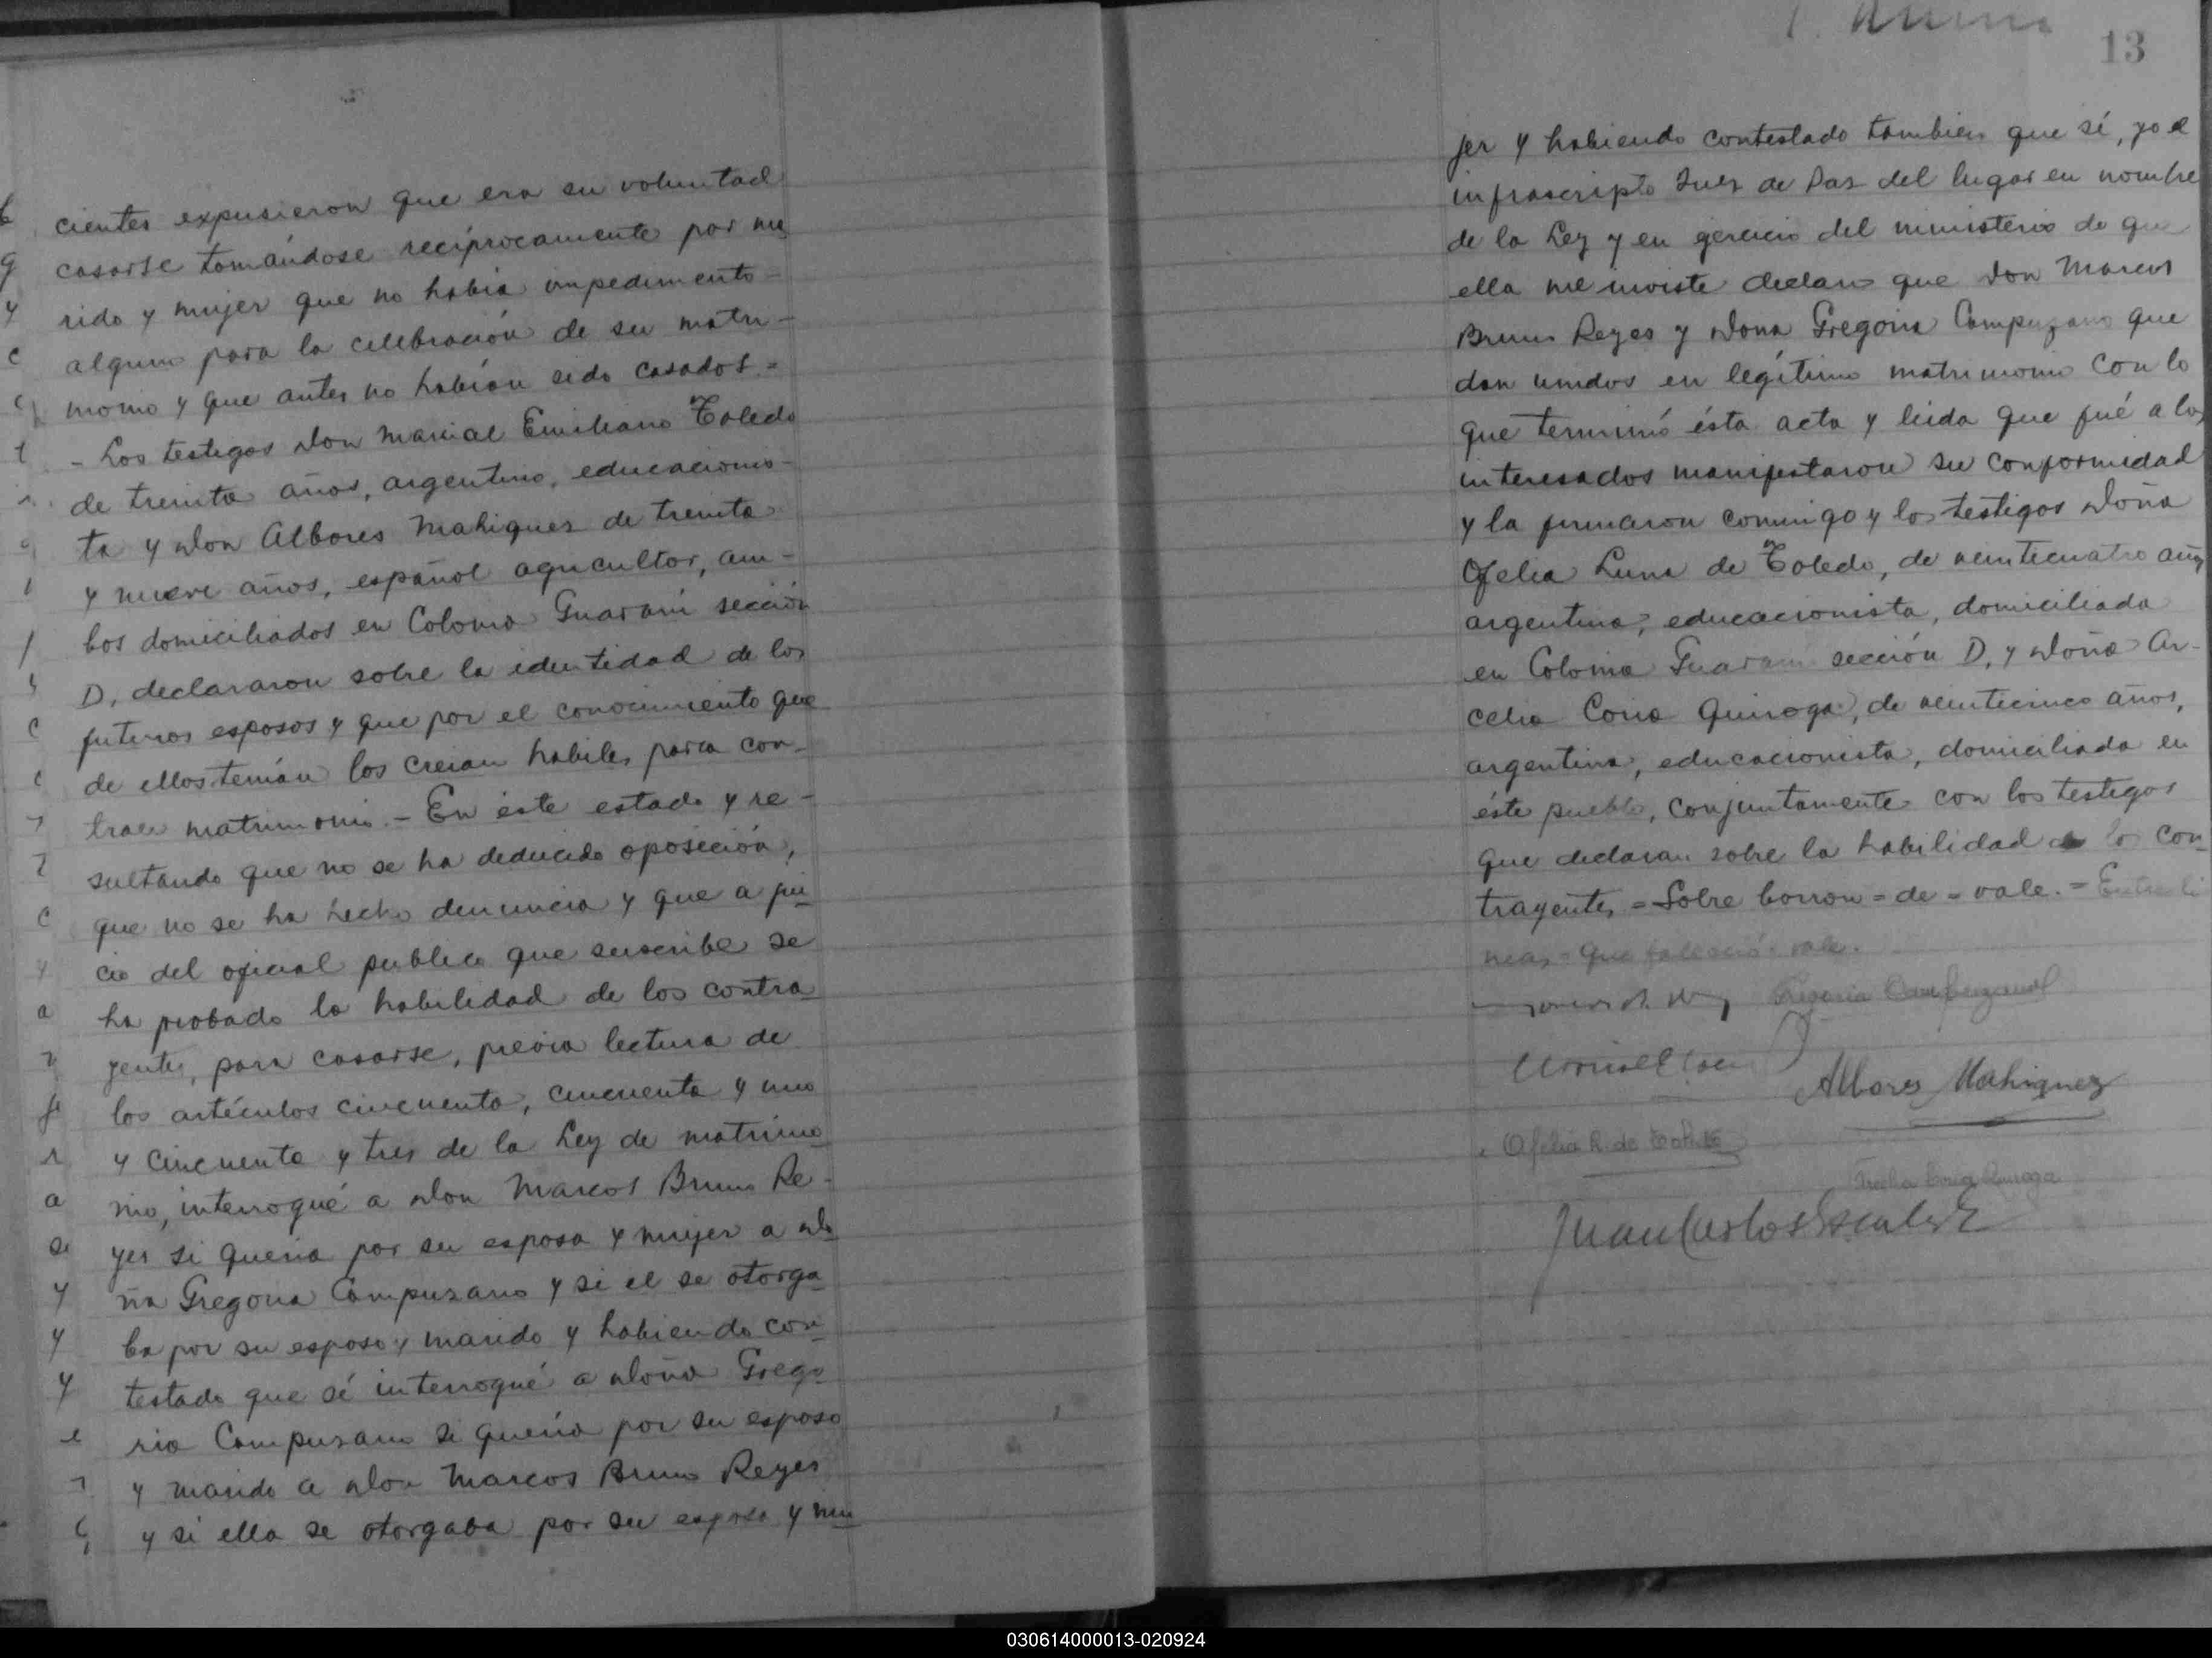 cientes expusieron que era su voluntad
casarse tomándose recíprocamente por ma
rido y mujer que no había impedimento-
alguno para la celebración de su matri-
monio y que antes no habían sido casados.=
- Los testigos Don Marcial Emiliano Toledo
de treinta años, argentino, educacionis-
ta y Don Albores Mahiques de treinta
y nueve años, español agricultor, am-
bos domiciliados en Colonia Guaraní sección
D, declararon sobre la identidad de los
futuros esposos y que por el conocimiento que
de ellos tenían los creian habiles para con-
traer matrimonio.- En éste estado y re-
sultando que no se ha deducido oposición,
que no se ha hecho denuncia y que a jui
cio del oficial publico que suscribe se
ha probado la habilidad de los contra
yentes, para casarse, previa lectura de
los artículos cincuenta, cincuenta y uno
y cincuenta y tres de la Ley de matrimo
nio, interrogué a Don Marcos Bruno Re-
yes si quería por su esposa y mujer a Do
ña Gregoria Campuzano y si el se otorga
ba por su esposo y marido y habiendo con
testado que sí interrogué a Doña Grego
ria Campuzano si quería por su esposo
y marido a Don Marcos Bruno Reyes
y si ella se otorgaba por su esposa y mu
13
jer y habiendo contestado tambien que sí, yo el
infrascripto Juez de Paz del lugar en nombre
de la Ley y en ejercicio del ministerio de que
ella me inviste declaro que Don Marcos
Bruno Reyes y Dona Gregoria Campuzano que
dan unidos en legítimo matrimonio con lo
que terminó ésta acta y leida que fué a los
interesados manifestaron su conformidad
y la firmaron conmigo y los testigos Doña
Ofelia Luna de Toledo, de veinticuatro años
argentina, educacionista, domiciliada
en Colonia Guaraní sección D, y Doña Ar-
celia Coria Quiroga, de veinticinco años,
argentina, educacionista, domiciliada en
éste pueblo, conjuntamente con los testigos
que declaran sobre la habilidad de los con
trayentes = Sobre borron = de = vale. = Entre li
neas = que falleció = vale.
Gregoria Campuzano
Albores Mahiquez
Ofelia L. de Toledo
Arcelia Coria Quiroga
Juan Carlos
030614000013-020924